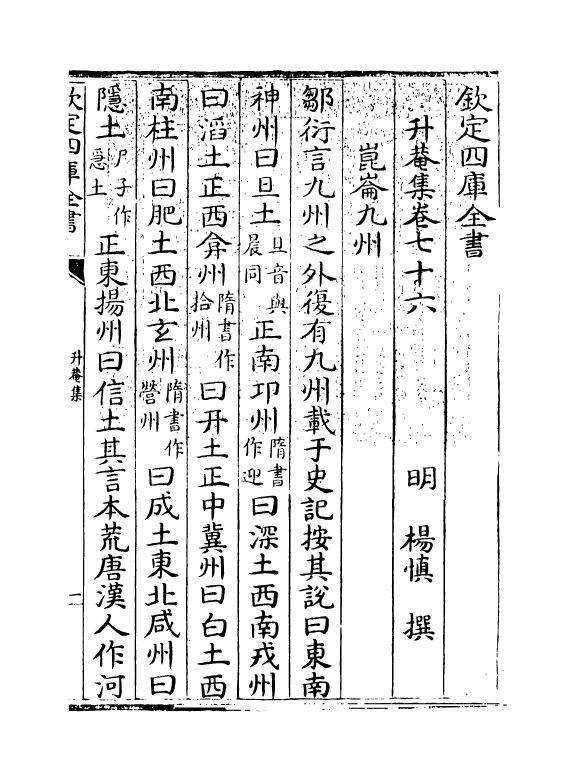 欽定四庫全書
升菴集卷七十六
明　楊慎　撰
崑崙九州
鄒衍言九州之外復有九州載于史記按其説曰東南
神州曰旦土旦音與晨同正南卭州隋書作迎曰深土西南戎州
曰滔土正西弇州隋書作拾州曰开土正中冀州曰白土西
南柱州曰肥土西北玄州隋書作營州曰成土東北咸州曰
隱土尸子作㥯土正東揚州曰信土其言本荒唐漢人作河
欽定四庫全書
升菴集
一